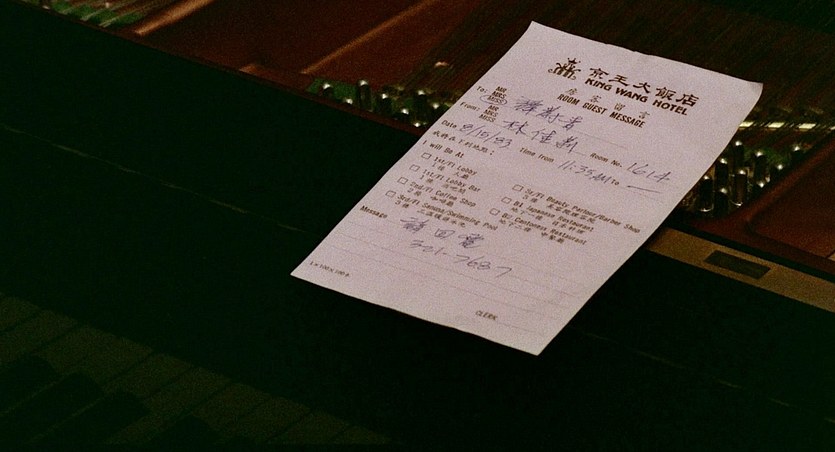 京王大飯店
KING WANG HOTEL
房客留言
ROOM GUEST MESSAGE
To: MR MRS MISS 譚蔚青
From: MR MRS MISS 林佳莉 Room No. 1614
Date 8/15/83 Time from 11:35 AM To —
I will Be At
□ 1st/Fl Lobby □ 3r/Fl Beauty Partner/Barber Shop
□ 1st/Fl Lobby Bar □ B1 Japanese Restaurant
□ 2nd/Fl Coffee Shop □ B2 Cantonese Restaurant
□ 3rd/Fl Sauana/Swimming Pool
Message 請回電
321-7687
CLERK